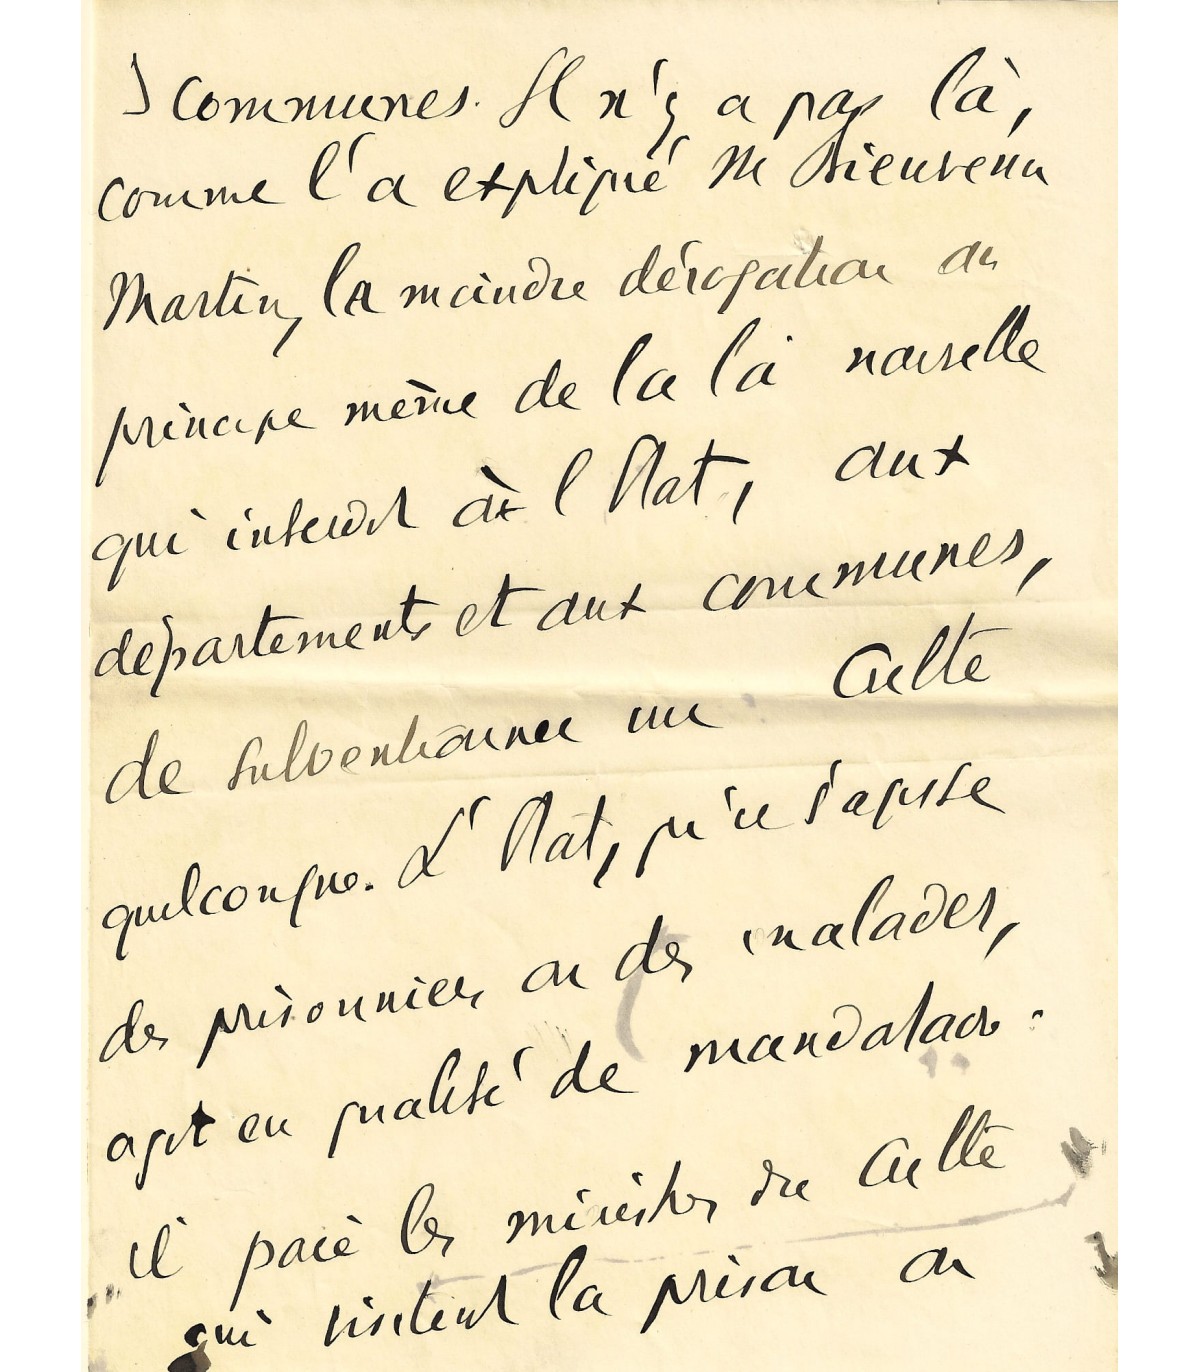 communes. Il n'y a pas là,
comme l'a expliqué M Bienvenu
Martin, la moindre dérogation au
principe même de la loi nouvelle
qui interdit à l'Etat, aux
départements et aux communes,
de subventionner un Culte
quelconque. L'Etat, qu'il s'agisse
des prisonniers ou des malades,
agit en qualité de mandataire.
il paie les ministres du Culte
qui visitent la prison ou